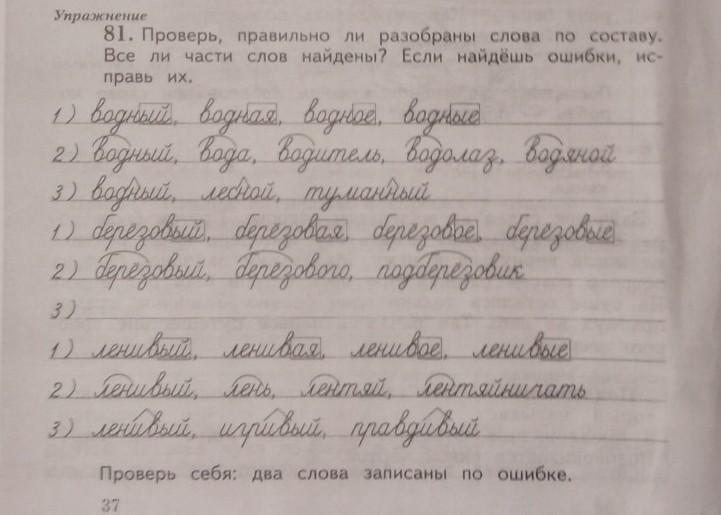 Упражнение
81. Проверь, правильно ли разобраны слова по составу.
Все ли части слов найдены? Если найдёшь ошибки, ис-
правь их.
1) водный, водная, водное, водные
2) водный, вода, водитель, водолаз, водяной
3) водный, лесной, туманный
1) берёзовый, берёзовая, берёзовое, берёзовые
2) берёзовый, берёзового, подберёзовик
3)
1) ленивый, ленивая, ленивое, ленивые
2) ленивый, лень, лентяй, лентяйничать
3) ленивый, игривый, правдивый
Проверь себя: два слова записаны по ошибке.
37